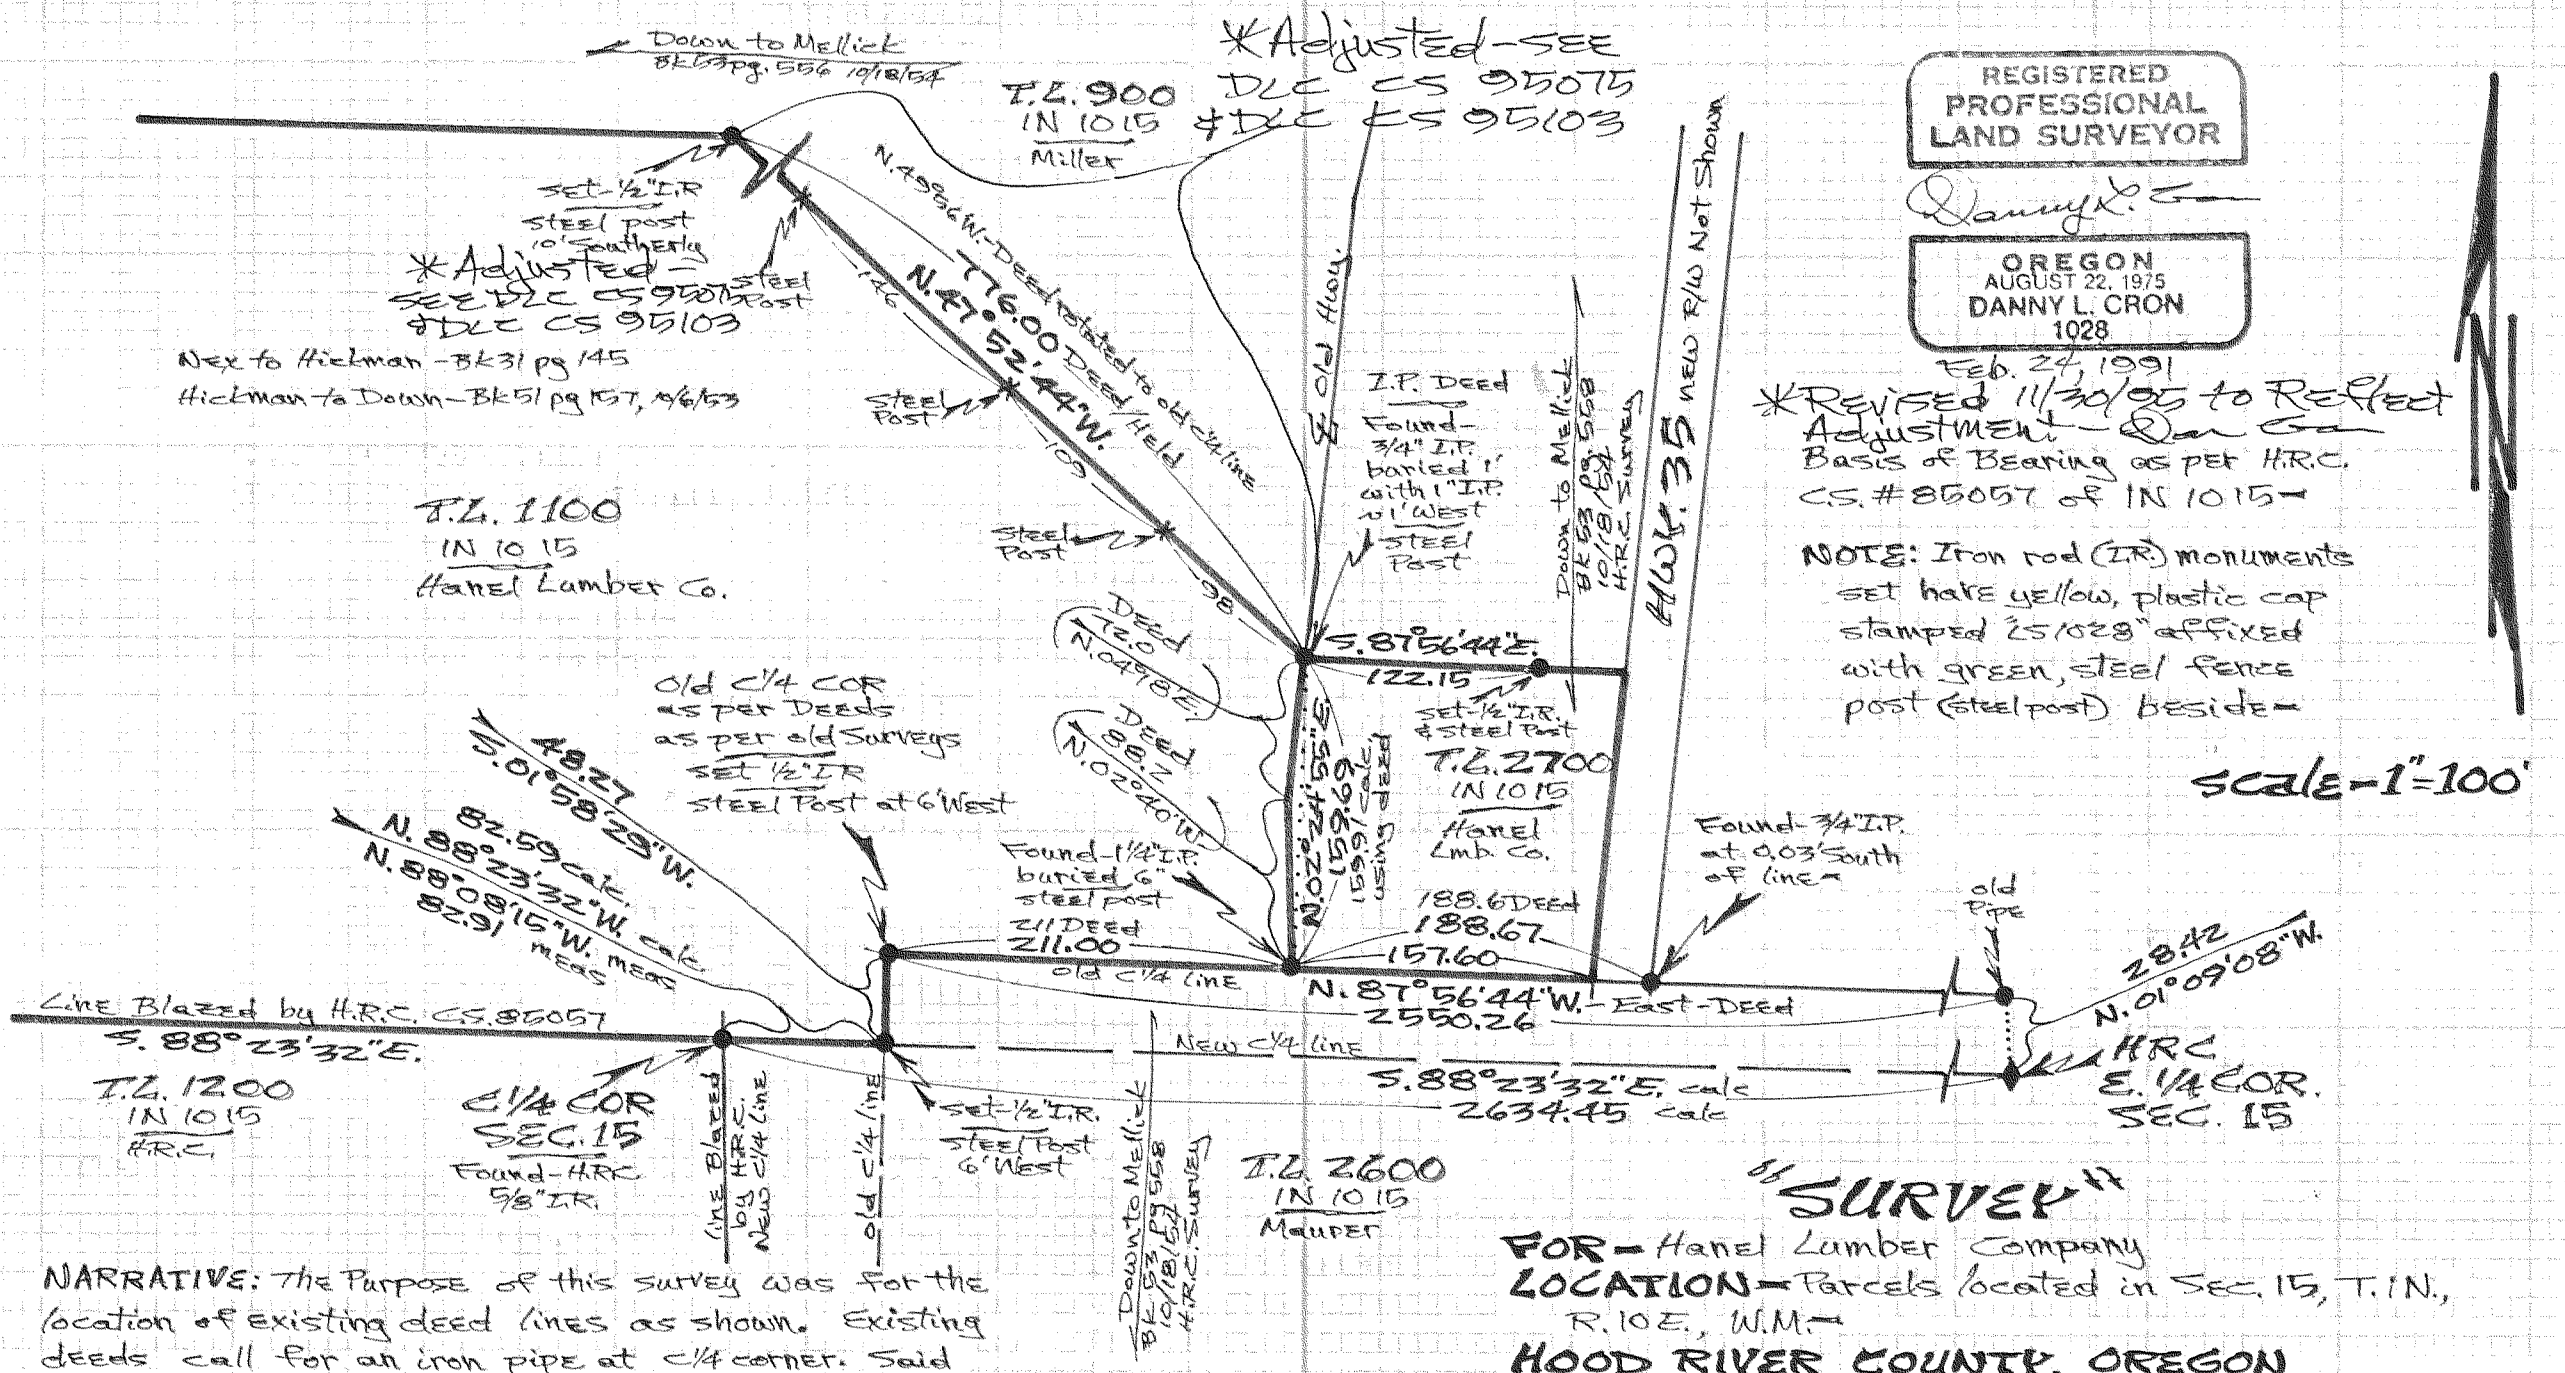 Down to Mellick
Bk 53 pg. 556 10/18/54
*Adjusted-SEE
DLC CS 95075
& DLC CS 95103
T.L. 900
IN 10 15
Miller
REGISTERED
PROFESSIONAL
LAND SURVEYOR
Danny L. Cron
OREGON
AUGUST 22, 1975
DANNY L. CRON
1028
Feb. 24, 1991
*Revised 11/30/95 to Reflect
Adjustment - Dan Cron
Basis of Bearing as per H.R.C.
C.S. #85057 of IN 10 15-
NOTE: Iron rod (I.R.) monuments
set have yellow, plastic cap
stamped "LS1028" affixed
with green, steel fence
post (steel post) beside-
Scale-1"=100'
N
set-1/2" I.R
steel post
10' Southerly
*Adjusted-
SEE DLC CS 95075
& DLC CS 95103
steel
Post
Nex to Hickman -Bk31 pg 145
Hickman to Down-Bk51 pg 157,
T.L. 1100
IN 10 15
Hanel Lumber Co.
-Deed rotated to old c 1/4 line
776.00 Deed/Held
N.47°52'44"W.
146
109
98
Steel
Post
Steel
Post
℄ Old Hwy.
I.P. Deed
Found-
3/4" I.P.
buried 1'
with 1" I.P.
~1' West
Steel
Post
Down to Mellick
Bk 53 pg. 558
10/18/54
H.R.C. Survey
HWY. 35 new R/W Not Shown
S.87°56'44"E.
122.15
set-1/2" I.R.
& steel Post
T.L. 2700
IN 10 15
Hanel
Lmb. Co.
Deed
72.0
Deed
88.2
N.02°40'W.
159.69
159.91 calc.
using deed
Old C1/4 COR
as per Deeds
as per old Surveys
set 1/2" IR
steel Post at 6' West
48.27
S.01°58'29"W.
82.59 calc.
N.88°23'32"W. calc.
N.88°08'15"W. meas
82.91 meas
Found-1 1/4" I.P.
buried 6"
steel post
211 Deed
211.00
old C1/4 line
188.6 Deed
188.67
157.60
Found-3/4" I.P.
at 0.03' South
of line-
old
Pipe
28.42
N.01°09'08"W.
N.87°56'44"W.-East-Deed
2550.26
Line Blazed by H.R.C. C.S. 85057
S. 88°23'32"E.
New C1/4 line
S.88°23'32"E. calc
2634.45 calc
H.R.C
E. 1/4 COR.
SEC. 15
T.L. 1200
IN 10 15
H.R.C.
C1/4 COR
SEC. 15
Found-HRC
5/8" I.R.
line Blazed
by H.R.C.
New C1/4 line
old C1/4 line
set-1/2" I.R.
steel Post
6' West
Down to Mellick
Bk 53 pg 558
10/18/54
H.R.C. Survey
T.L. 2600
IN 10 15
Maurer
"SURVEY"
FOR-Hanel Lumber Company
LOCATION-Parcels located in Sec. 15, T.1N.,
R.10E., W.M.-
HOOD RIVER COUNTY, OREGON
NARRATIVE: The Purpose of this survey was for the
location of existing deed lines as shown. Existing
deeds call for an iron pipe at C1/4 corner. Said